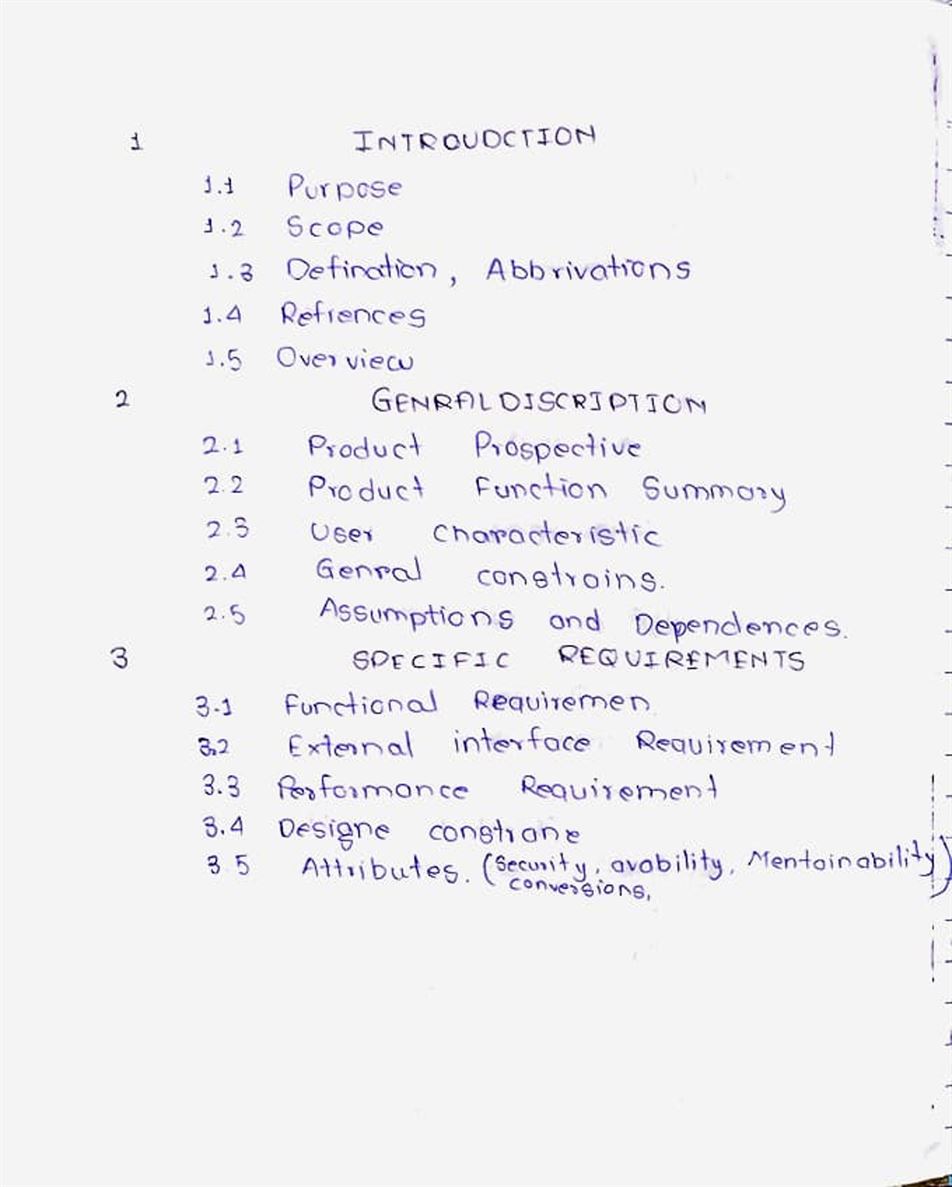 1 INTROUDCTION
1.1 Purpose
1.2 Scope
1.3 Defination, Abbrivations
1.4 Refrences
1.5 Overview
2 GENRAL DISCRIPTION
2.1 Product Prospective
2.2 Product Function Summary
2.3 User Characteristic
2.4 Genral constrains.
2.5 Assumptions and Dependences.
3 SPECIFIC REQUIREMENTS
3.1 Functional Requiremen
3.2 External interface Requirement
3.3 Performance Requirement
3.4 Designe constrane
3.5 Attributes. (Security, avability, Mentainability)
conversions,